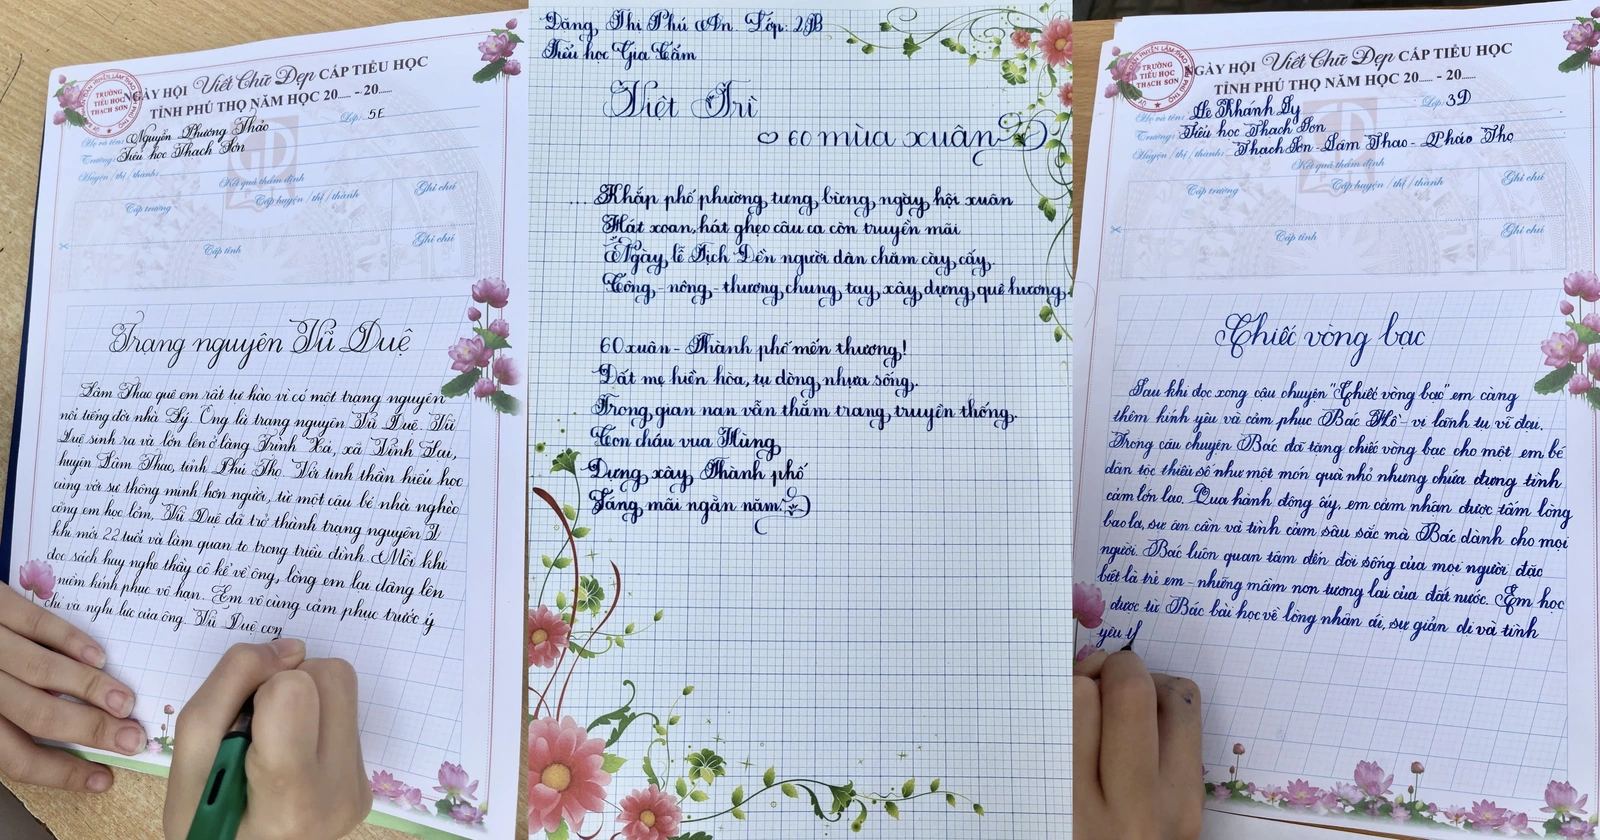 NGÀY HỘI Viết Chữ Đẹp CẤP TIỂU HỌC
TỈNH PHÚ THỌ NĂM HỌC 20..... - 20......
TRƯỜNG
TIỂU HỌC
THẠCH SƠN
Họ và tên: Nguyễn Phương Thảo Lớp: 5E
Trường: Tiểu học Thạch Sơn
Huyện/thị/thành:
Kết quả thẩm định
Cấp trường
Cấp huyện/thị/thành
Ghi chú
Cấp tỉnh
Ghi chú
Trạng nguyên Vũ Duệ
Lâm Thao quê em rất tự hào vì có một trạng nguyên
nổi tiếng đời nhà Lý. Ông là trạng nguyên Vũ Duệ. Vũ
Duệ sinh ra và lớn lên ở làng Trình Xá, xã Vĩnh Lại,
huyện Lâm Thao, tỉnh Phú Thọ. Với tinh thần hiếu học
cùng với sự thông minh hơn người, từ một cậu bé nhà nghèo
cõng em học lỏm, Vũ Duệ đã trở thành trạng nguyên
khi mới 22 tuổi và làm quan to trong triều đình. Mỗi khi
đọc sách hay nghe thầy cô kể về ông, lòng em lại dâng lên
niềm kính phục vô hạn. Em vô cùng cảm phục trước ý
chí và nghị lực của ông. Vũ Duệ còn
Đặng Thị Phú An Lớp: 2B
Tiểu học Gia Cẩm
Việt Trì
60 mùa xuân
....Khắp phố phường tưng bừng ngày hội xuân
Hát xoan, hát ghẹo câu ca còn truyền mãi
Ngày lễ Tịch Điền người dân chăm cày cấy.
Công - nông - thương chung tay xây dựng quê hương.
60 xuân - Thành phố mến thương!
Đất mẹ hiền hòa, tụ dòng nhựa sống.
Trong gian nan vẫn thắm trang truyền thống.
Con cháu vua Hùng
Dựng xây Thành phố
Sáng mãi ngàn năm.
NGÀY HỘI Viết Chữ Đẹp CẤP TIỂU HỌC
TỈNH PHÚ THỌ NĂM HỌC 20..... - 20......
TRƯỜNG
TIỂU HỌC
THẠCH SƠN
Họ và tên: Lê Khánh Ly Lớp: 3D
Trường: Tiểu học Thạch Sơn
Huyện/thị/thành: Thạch Sơn - Lâm Thao - Phú Thọ
Kết quả thẩm định
Cấp trường
Cấp huyện/thị/thành
Ghi chú
Cấp tỉnh
Ghi chú
Chiếc vòng bạc
Sau khi đọc xong câu chuyện "Chiếc vòng bạc" em càng
thêm kính yêu và cảm phục Bác Hồ - vị lãnh tụ vĩ đại.
Trong câu chuyện Bác đã tặng chiếc vòng bạc cho một em bé
dân tộc thiểu số như một món quà nhỏ nhưng chứa đựng tình
cảm lớn lao. Qua hành động ấy, em cảm nhận được tấm lòng
bao la, sự ân cần và tình cảm sâu sắc mà Bác dành cho mọi
người. Bác luôn quan tâm đến đời sống của mọi người đặc
biệt là trẻ em - những mầm non tương lai của đất nước. Em học
được từ Bác bài học về lòng nhân ái, sự giản dị và tình
yêu